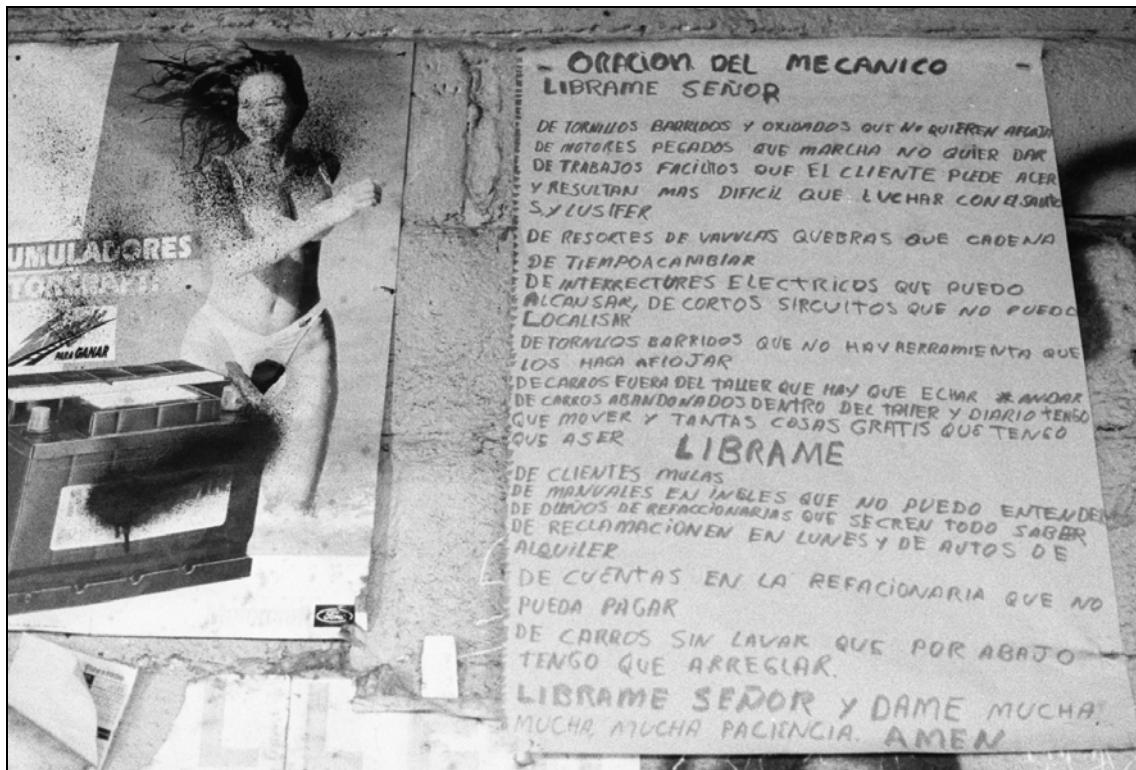 UMULADORES
TORCRAFT:
PARA GANAR
Ford
- ORACION DEL MECANICO -
LIBRAME SEÑOR
DE TORNILLOS BARRIDOS Y OXIDADOS QUE NO QUIEREN AFLOJAR
DE MOTORES PEGADOS QUE MARCHA NO QUIER DAR
DE TRABAJOS FACILITOS QUE EL CLIENTE PUEDE ACER
Y RESULTAN MAS DIFICIL QUE LUCHAR CON EL SANTO
S.Y LUSIFER
DE RESORTES DE VAVULAS QUEBRAS QUE CADENA
DE TIEMPO ACAMBIAR
DE INTERRECTURES ELECTRICOS QUE PUEDO
ALCANSAR, DE CORTOS SIRCUITOS QUE NO PUEDO
LOCALISAR
DE TORNILLOS BARRIDOS QUE NO HAY RERRAMIENTA QUE
LOS HAGA AFLOJAR
DE CARROS FUERA DEL TALLER QUE HAY QUE ECHAR ANDAR
DE CARROS ABANDONADOS DENTRO DEL TALLER Y DIARIO TENGO
QUE MOVER Y TANTAS COSAS GRATIS QUE TENGO
QUE ASER LIBRAME
DE CLIENTES MULAS
DE MANUALES EN INGLES QUE NO PUEDO ENTENDER
DE DUEÑOS DE REFACCIONARIAS QUE SECREN TODO SABER
DE RECLAMACIONEN EN LUNES Y DE AUTOS DE
ALQUILER
DE CUENTAS EN LA REFACIONARIA QUE NO
PUEDA PAGAR
DE CARROS SIN LAVAR QUE POR ABAJO
TENGO QUE ARREGLAR.
LIBRAME SEÑOR Y DAME MUCHA
MUCHA, MUCHA PACIENCIA. AMEN